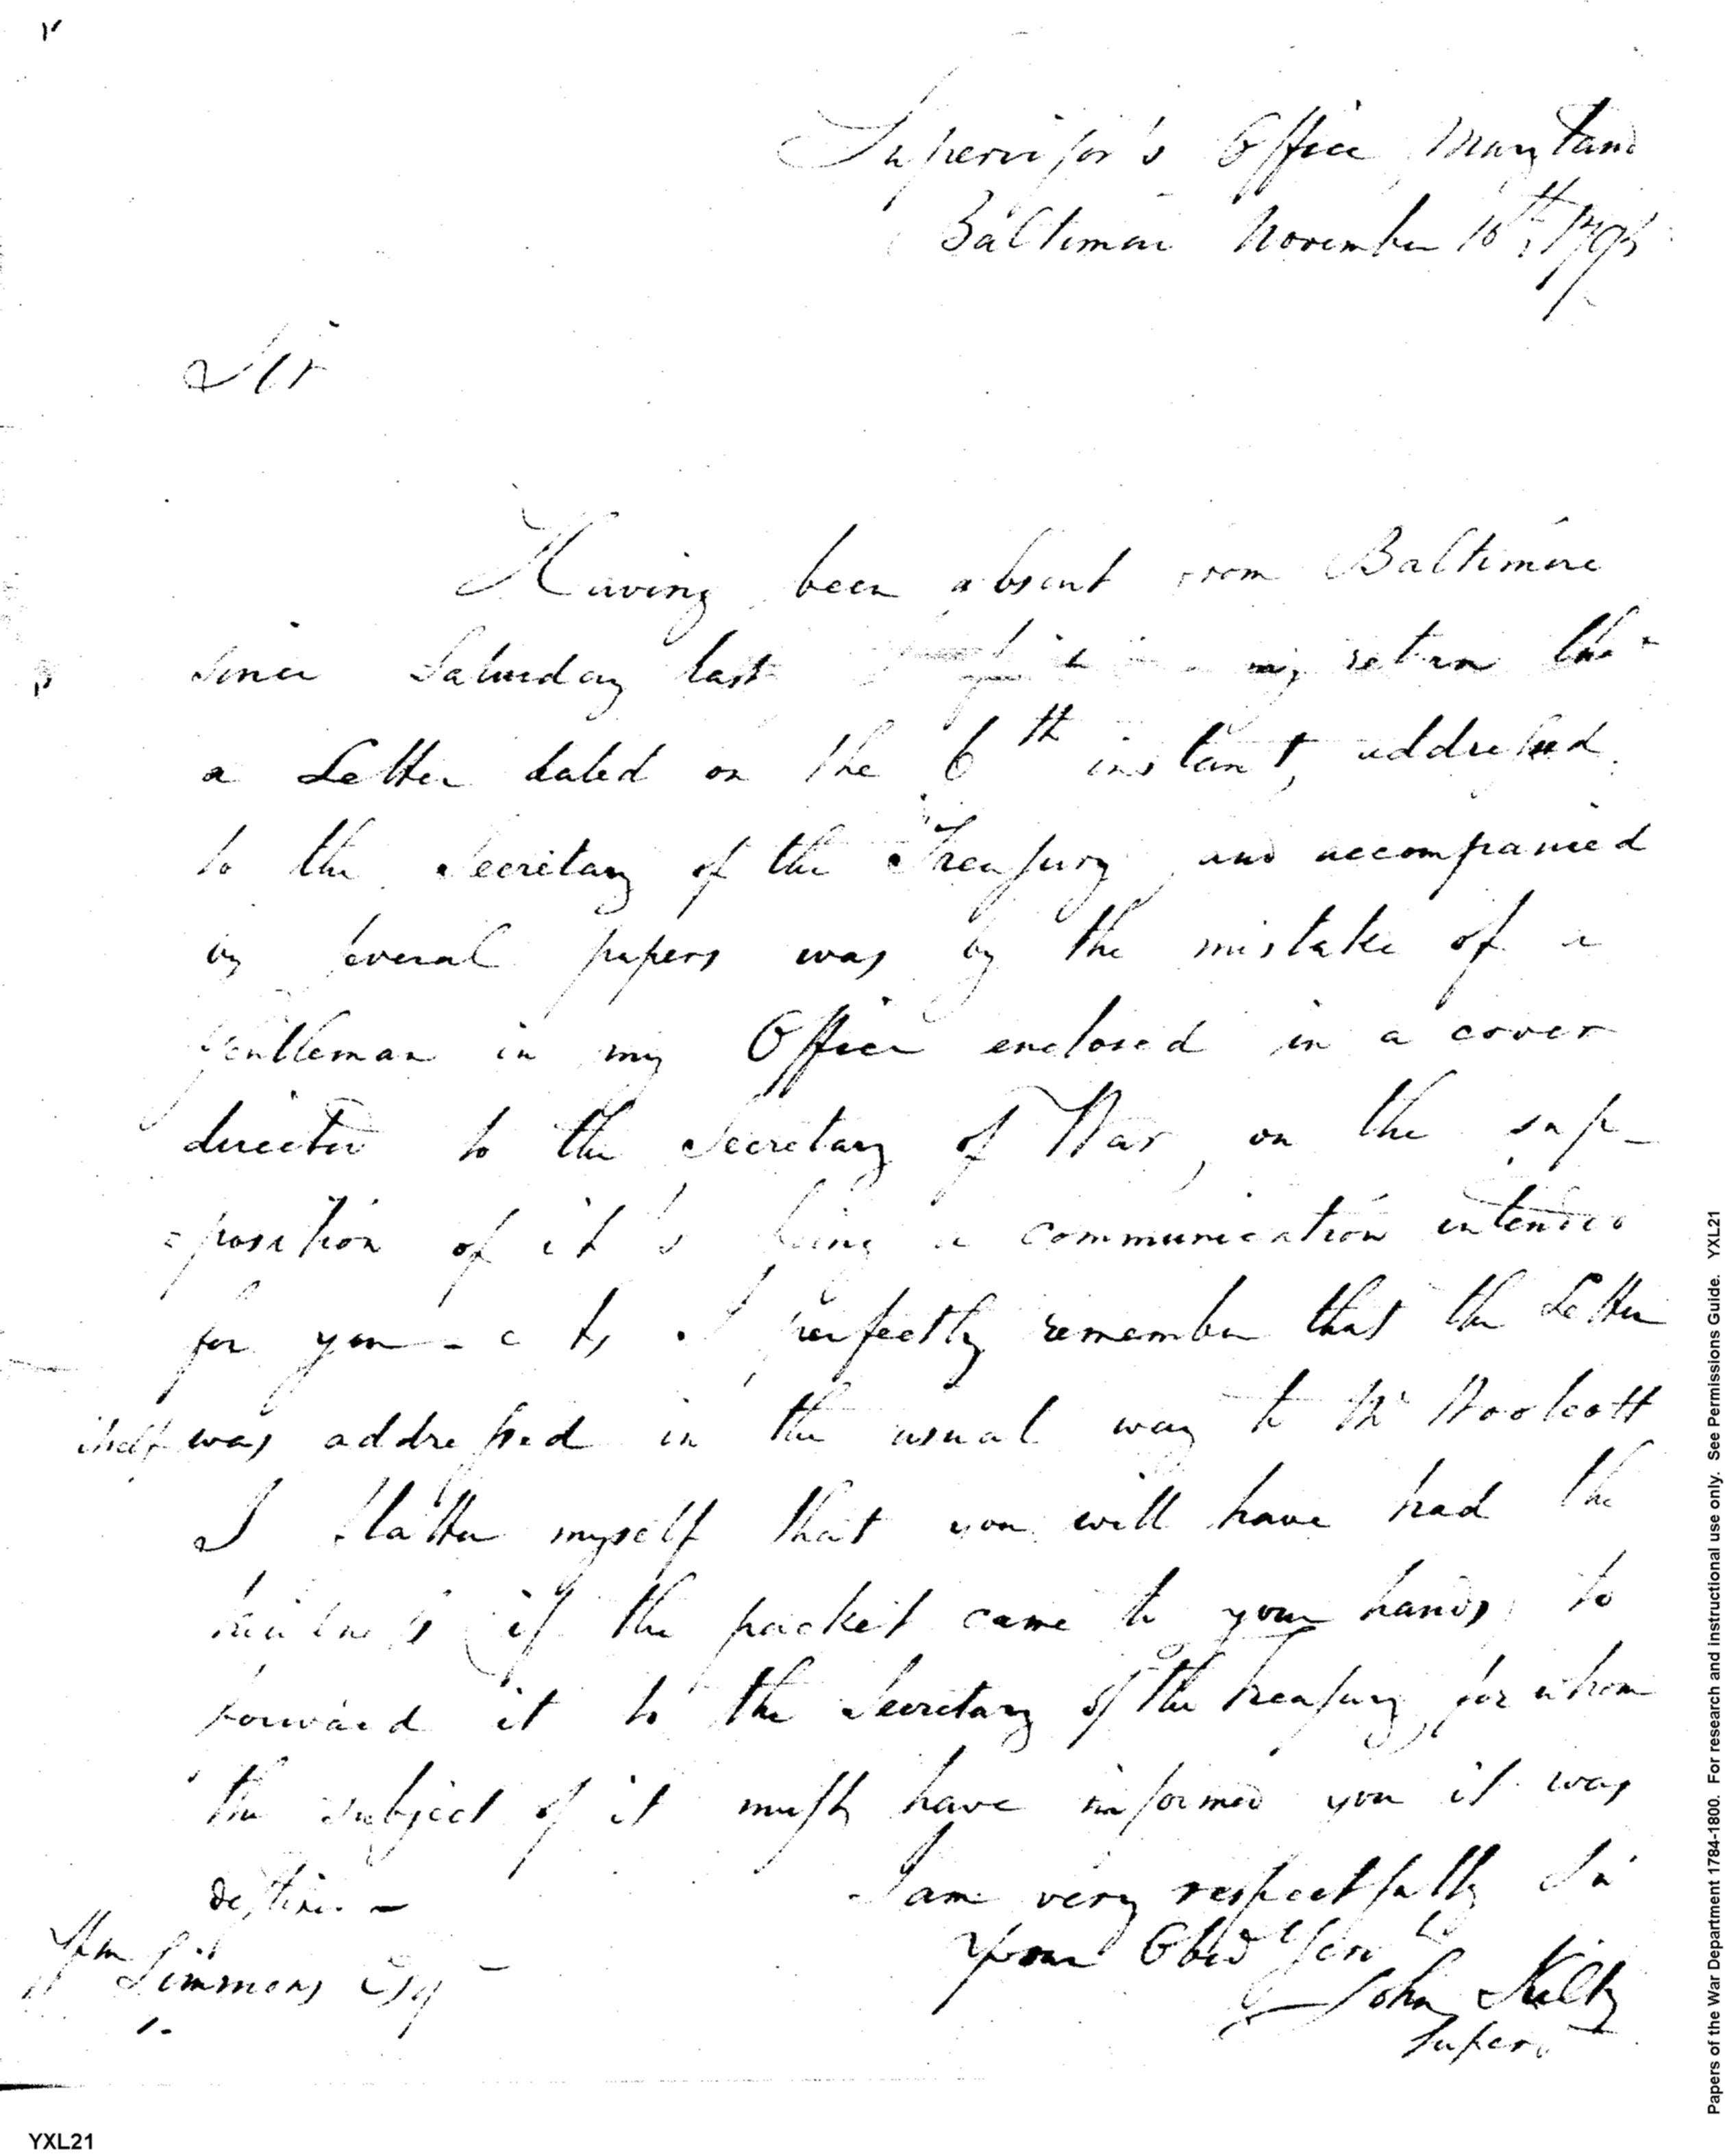 Supervisor's Office Maryland
Baltimore November 10th
Sir
Having been absent from Baltimore
since Saturday last my return that
a Letter dated on the 6th instant, addressed
to the Secretary of the Treasury, and accompanied
by several papers was by the mistake of a
gentleman in my Office enclosed in a cover
directed to the Secretary of War, on the sup-
-position of it's being a communication intended
for you I perfectly remember that the Letter
itself was addressed in the usual way to Mr Woolcott
I flatter myself that you will have had the
if the packet came to your hands, to
forward it to the Secretary of the Treasury, for whom
the subject of it must have informed you it was
I am very respectfully Sir
Your Obed Serv
Wm Simmons Esqr
John Kilty
Superv
Papers of the War Department 1784-1800. For research and instructional use only. See Permissions Guide. YXL21
YXL21